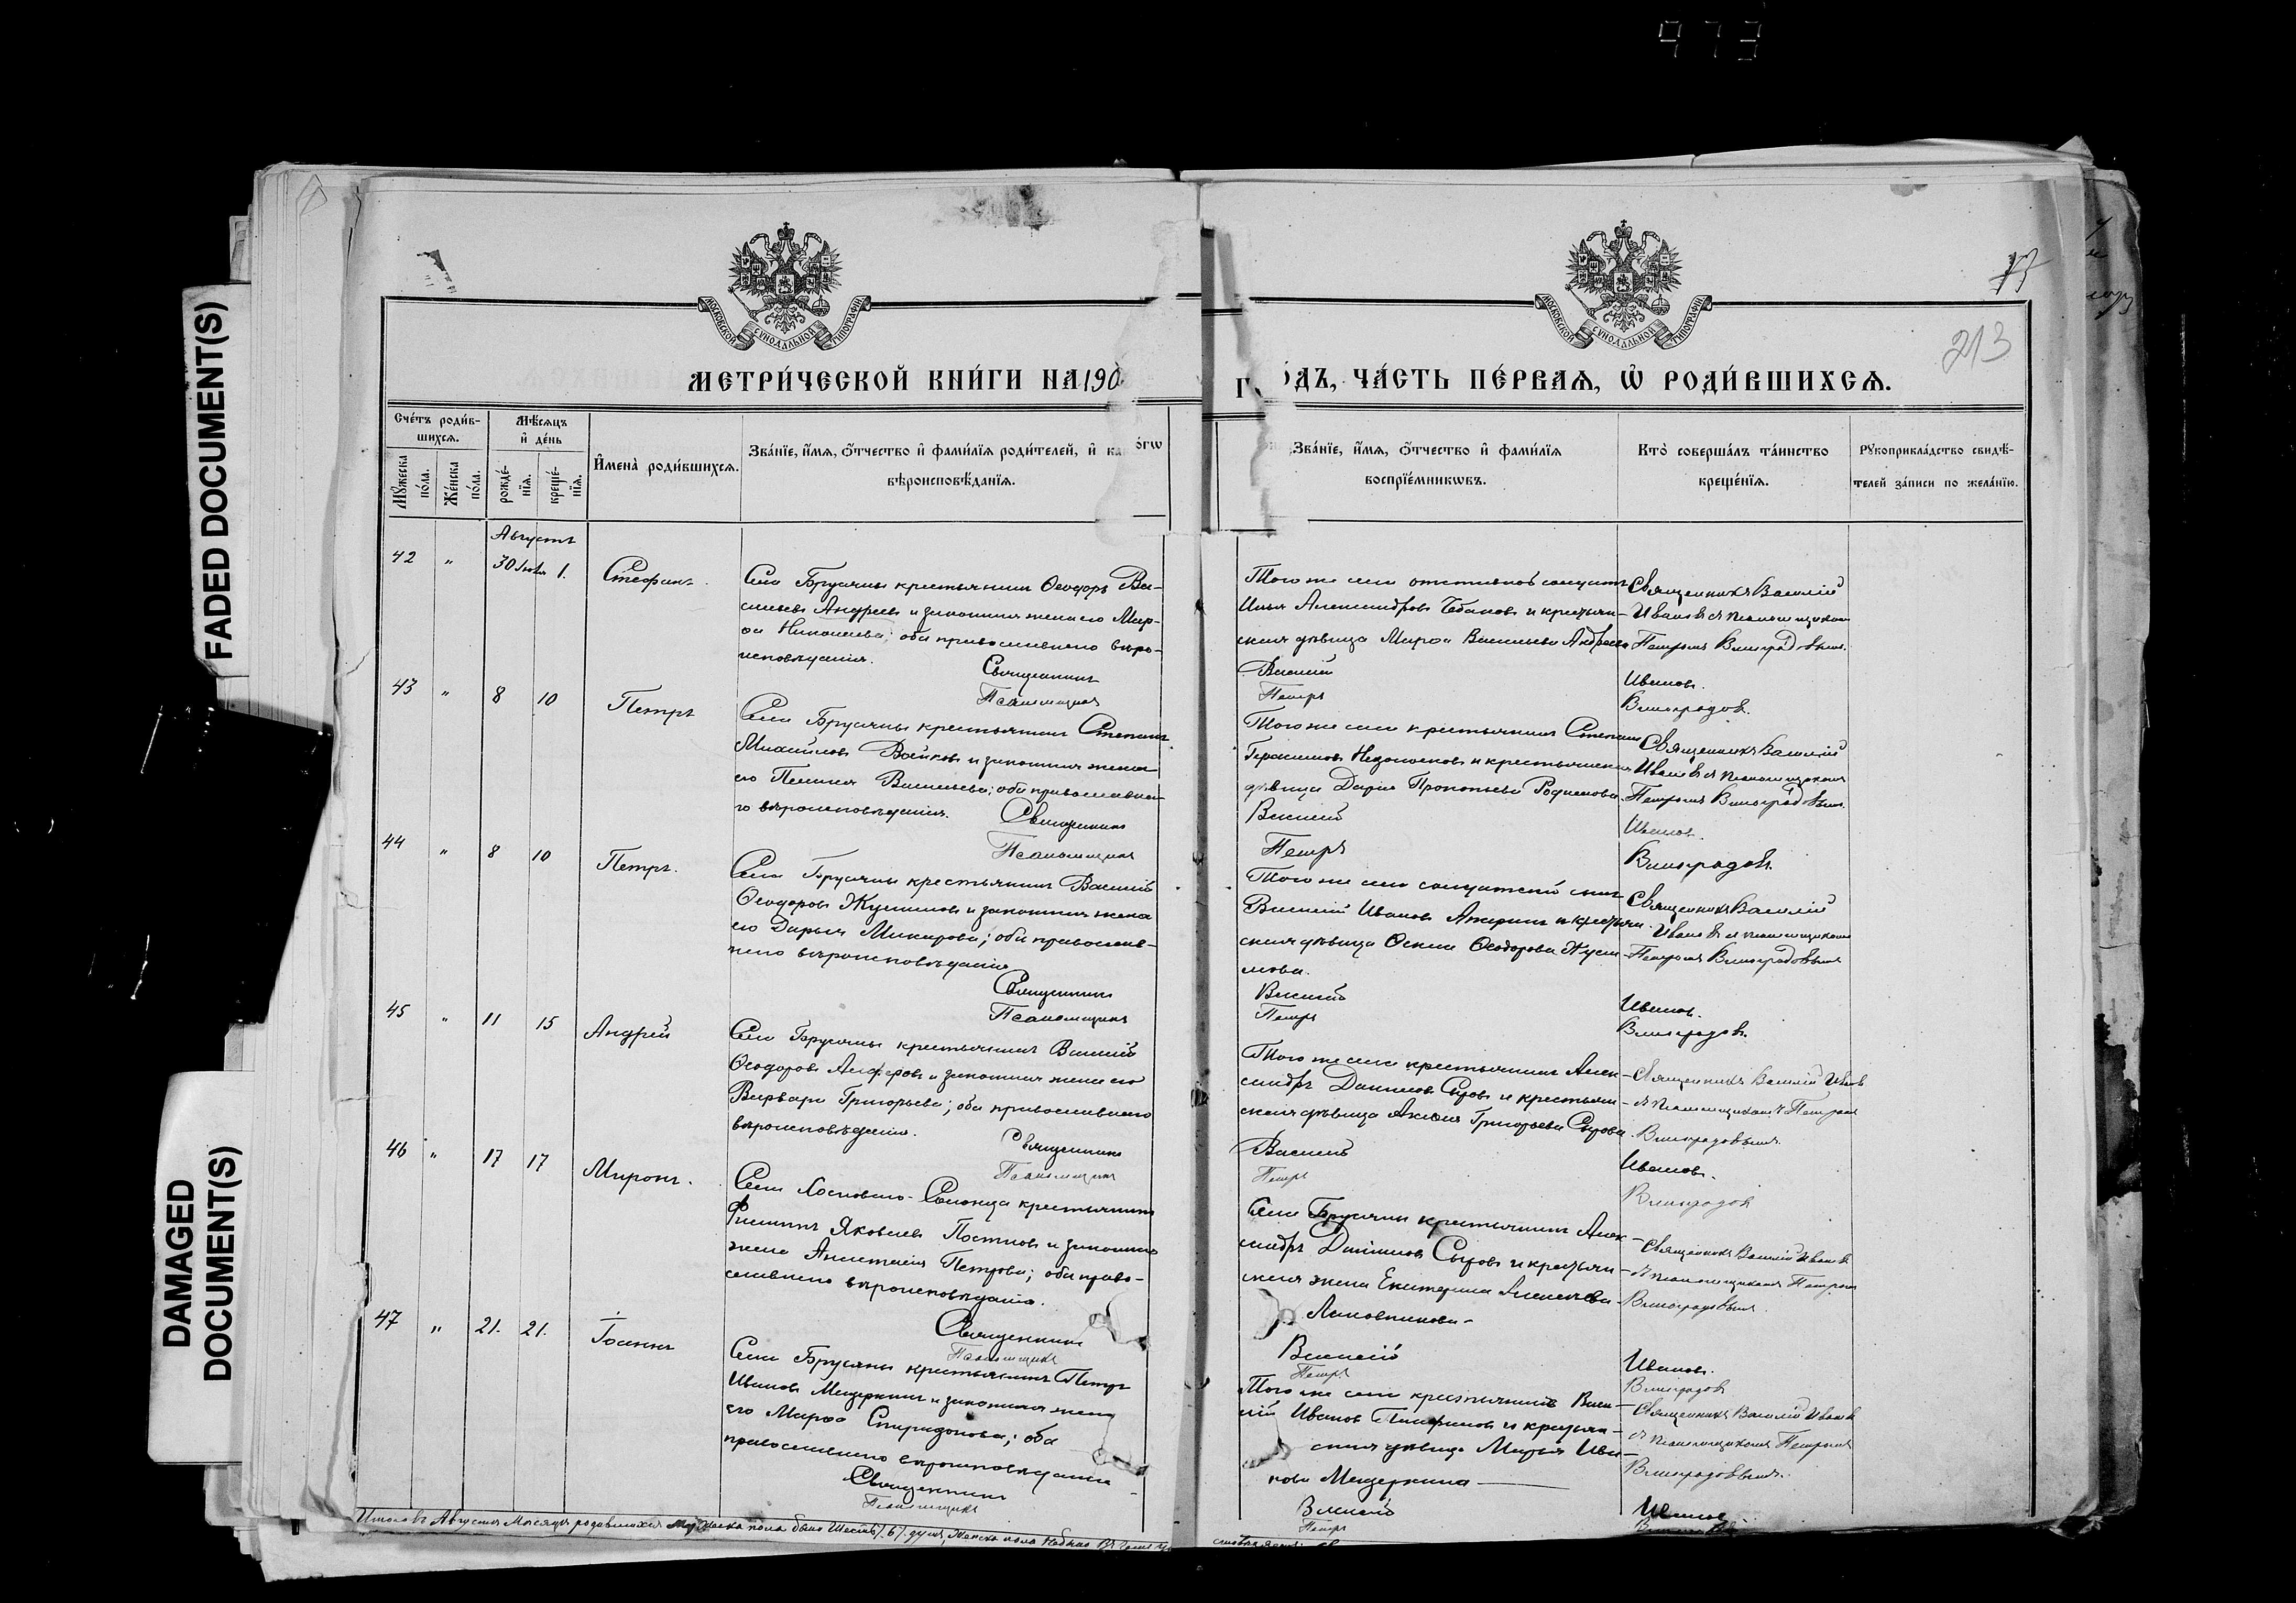 973
FADED DOCUMENT(S)
DAMAGED
DOCUMENT(S)
213
МОСКОВСКОЙ СѴНОДАЛЬНОЙ ТИПОГРАФІИ
МОСКОВСКОЙ СѴНОДАЛЬНОЙ ТИПОГРАФІИ
МЕТРИ́ЧЕСКОЙ КНИ́ГИ НА 190
ГО́ДЪ, ЧА́СТЬ ПЕ́РВАѦ, Ѡ РОДИ́ВШИХСѦ.
Сче́тъ роди́в-
шихсѧ.
Мꙋжеска
по́ла.
Же́нска
по́ла.
Мѣ́сѧцъ
и҆ де́нь
рожде́-
нїѧ.
креще́-
нїѧ.
И҆мена̀ роди́вшихсѧ.
Зва́нїе, и҆́мѧ, ѻ҆́тчество и҆ фами́лїѧ роди́телей, и҆ ка
о́гѡ
вѣроисповѣ́данїѧ.
Зва́нїе, и҆́мѧ, ѻ҆́тчество и҆ фами́лїѧ
воспрїе́мникѡвъ.
Кто̀ соверша́лъ та́инство
креще́нїѧ.
Рꙋкоприкла́дство свидѣ́-
телей за́писи по жела́нїю.
Августъ
42 " 30 Іюля 1. Стефанъ.
Села Брусяны крестьянинъ Ѳеодоръ Ва-
сильевъ Андреевъ и законная жена его Мар-
ѳа Николаева; оба православнаго вѣро-
исповѣданія.
Священникъ
Псаломщикъ
Того же села отставной солдатъ
Илья Александровъ Чебаковъ и крестьян-
ская дѣвица Марѳа Васильева Андреева
Василій
Петръ
Священникъ Василій
Ивановъ съ псаломщикомъ
Петромъ Виноградовымъ.
Ивановъ.
Виноградовъ.
43 " 8 10 Петръ
Села Брусяны крестьянинъ Степанъ
Михайловъ Войновъ и законная жена
его Пелагія Васильева; оба православна-
го вѣроисповѣданія.
Священникъ
Псаломщикъ
Того же села крестьянинъ Степанъ
Герасимовъ и крестьянская
дѣвица Дарья Прокопьева Родионова.
Василій
Петръ
Священникъ Василій
Ивановъ съ псаломщикомъ
Петромъ Виноградовымъ.
Ивановъ.
Виноградовъ.
44 " 8 10 Петръ.
Села Брусяны крестьянинъ Василій
Ѳеодоровъ и законная жена
его Дарья Макарова; оба православ-
наго вѣроисповѣданія
Священникъ
Псаломщикъ
Того же села солдатскій сынъ
Василій Ивановъ и крестьян-
ская дѣвица Ѳеодорова
мова.
Василій
Петръ
Священникъ Василій
Ивановъ съ псаломщикомъ
Петромъ Виноградовымъ
Ивановъ.
Виноградовъ.
45 " 11 15 Андрей
Села Брусяны крестьянинъ Василій
Ѳеодоровъ Алферовъ и законная жена его
Варвара Григорьева; оба православнаго
вѣроисповѣданія.
Священникъ
Псаломщикъ
Того же села крестьянинъ Алек-
сандръ Даниловъ Сыровъ и крестьян-
ская дѣвица Григорьева Сырова.
Василій
Петръ
Священникъ Василій Ивановъ
съ псаломщикомъ Петромъ
Виноградовымъ.
Ивановъ.
Виноградовъ
46 " 17 17 Миронъ.
Села крестьянинъ
Филиппъ Яковлевъ Постновъ и законная
жена Анастасія Петрова; оба право-
славнаго вѣроисповѣданія.
Священникъ
Псаломщикъ
Села Брусяны крестьянинъ Алек-
сандръ Даниловъ Сыровъ и крестьян-
ская жена Екатерина Алексѣева
Василій
Петръ
Священникъ Василій Ивановъ
съ псаломщикомъ Петромъ
Виноградовымъ.
Ивановъ.
Виноградовъ
47 " 21. 21. Іоаннъ
Села Брусяны крестьянинъ Петръ
Ивановъ Мещеркинъ и законная жена
его Марѳа Спиридонова; оба
православнаго вѣроисповѣданія
Священникъ
Псаломщикъ
Того же села крестьянинъ Васи-
лій Ивановъ и крестьян-
ская дѣвица Марья Ива-
нова Мещеркина
Василій
Петръ
Священникъ Василій Ивановъ
съ псаломщикомъ Петромъ
Виноградовымъ.
Ивановъ
Итого въ Августѣ мѣсяцѣ родившихся мужеска пола было шесть /6/ душъ, женска пола